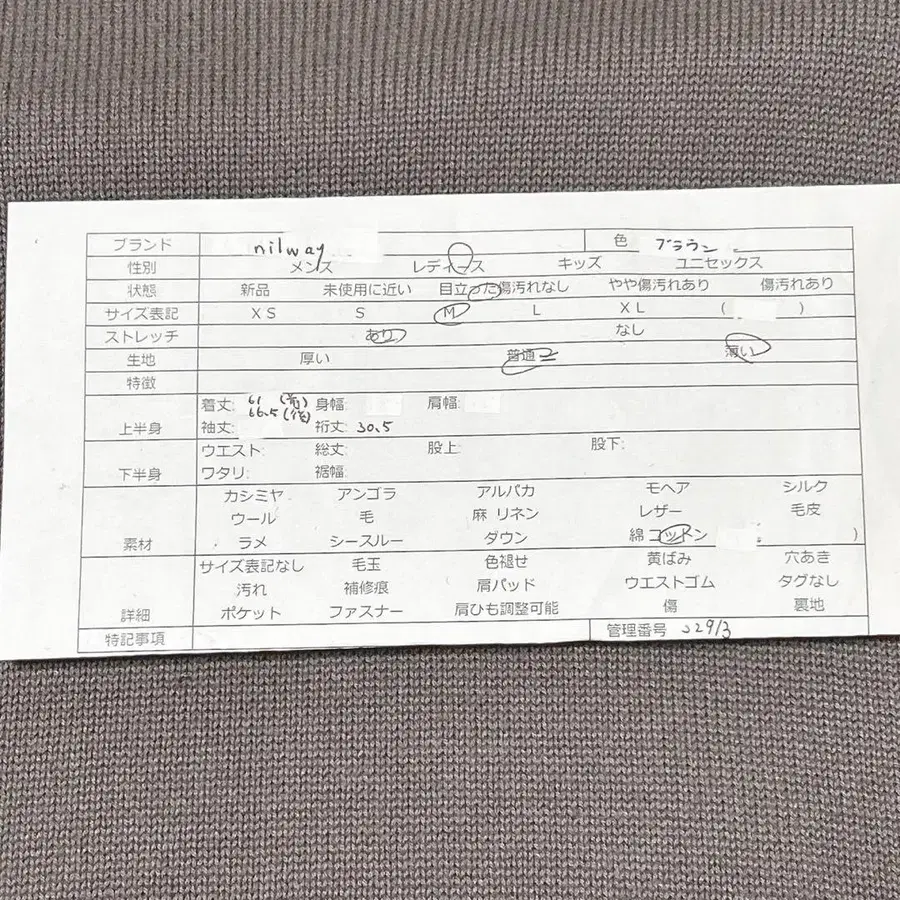 ブランド nilway 色 ブラウン
性別 メンズ レディース キッズ ユニセックス
状態 新品 未使用に近い 目立った傷汚れなし やや傷汚れあり 傷汚れあり
サイズ表記 XS S M L XL ( )
ストレッチ あり なし
生地 厚い 普通 薄い
特徴
上半身 着丈: 61 (前) 身幅: 肩幅:
66.5 (後)
袖丈: 裄丈: 30.5
下半身 ウエスト: 総丈: 股上: 股下:
ワタリ: 裾幅:
素材 カシミヤ アンゴラ アルパカ モヘア シルク
ウール 毛 麻 リネン レザー 毛皮
ラメ シースルー ダウン 綿 コットン )
詳細 サイズ表記なし 毛玉 色褪せ 黄ばみ 穴あき
汚れ 補修痕 肩パッド ウエストゴム タグなし
ポケット ファスナー 肩ひも調整可能 傷 裏地
特記事項 管理番号